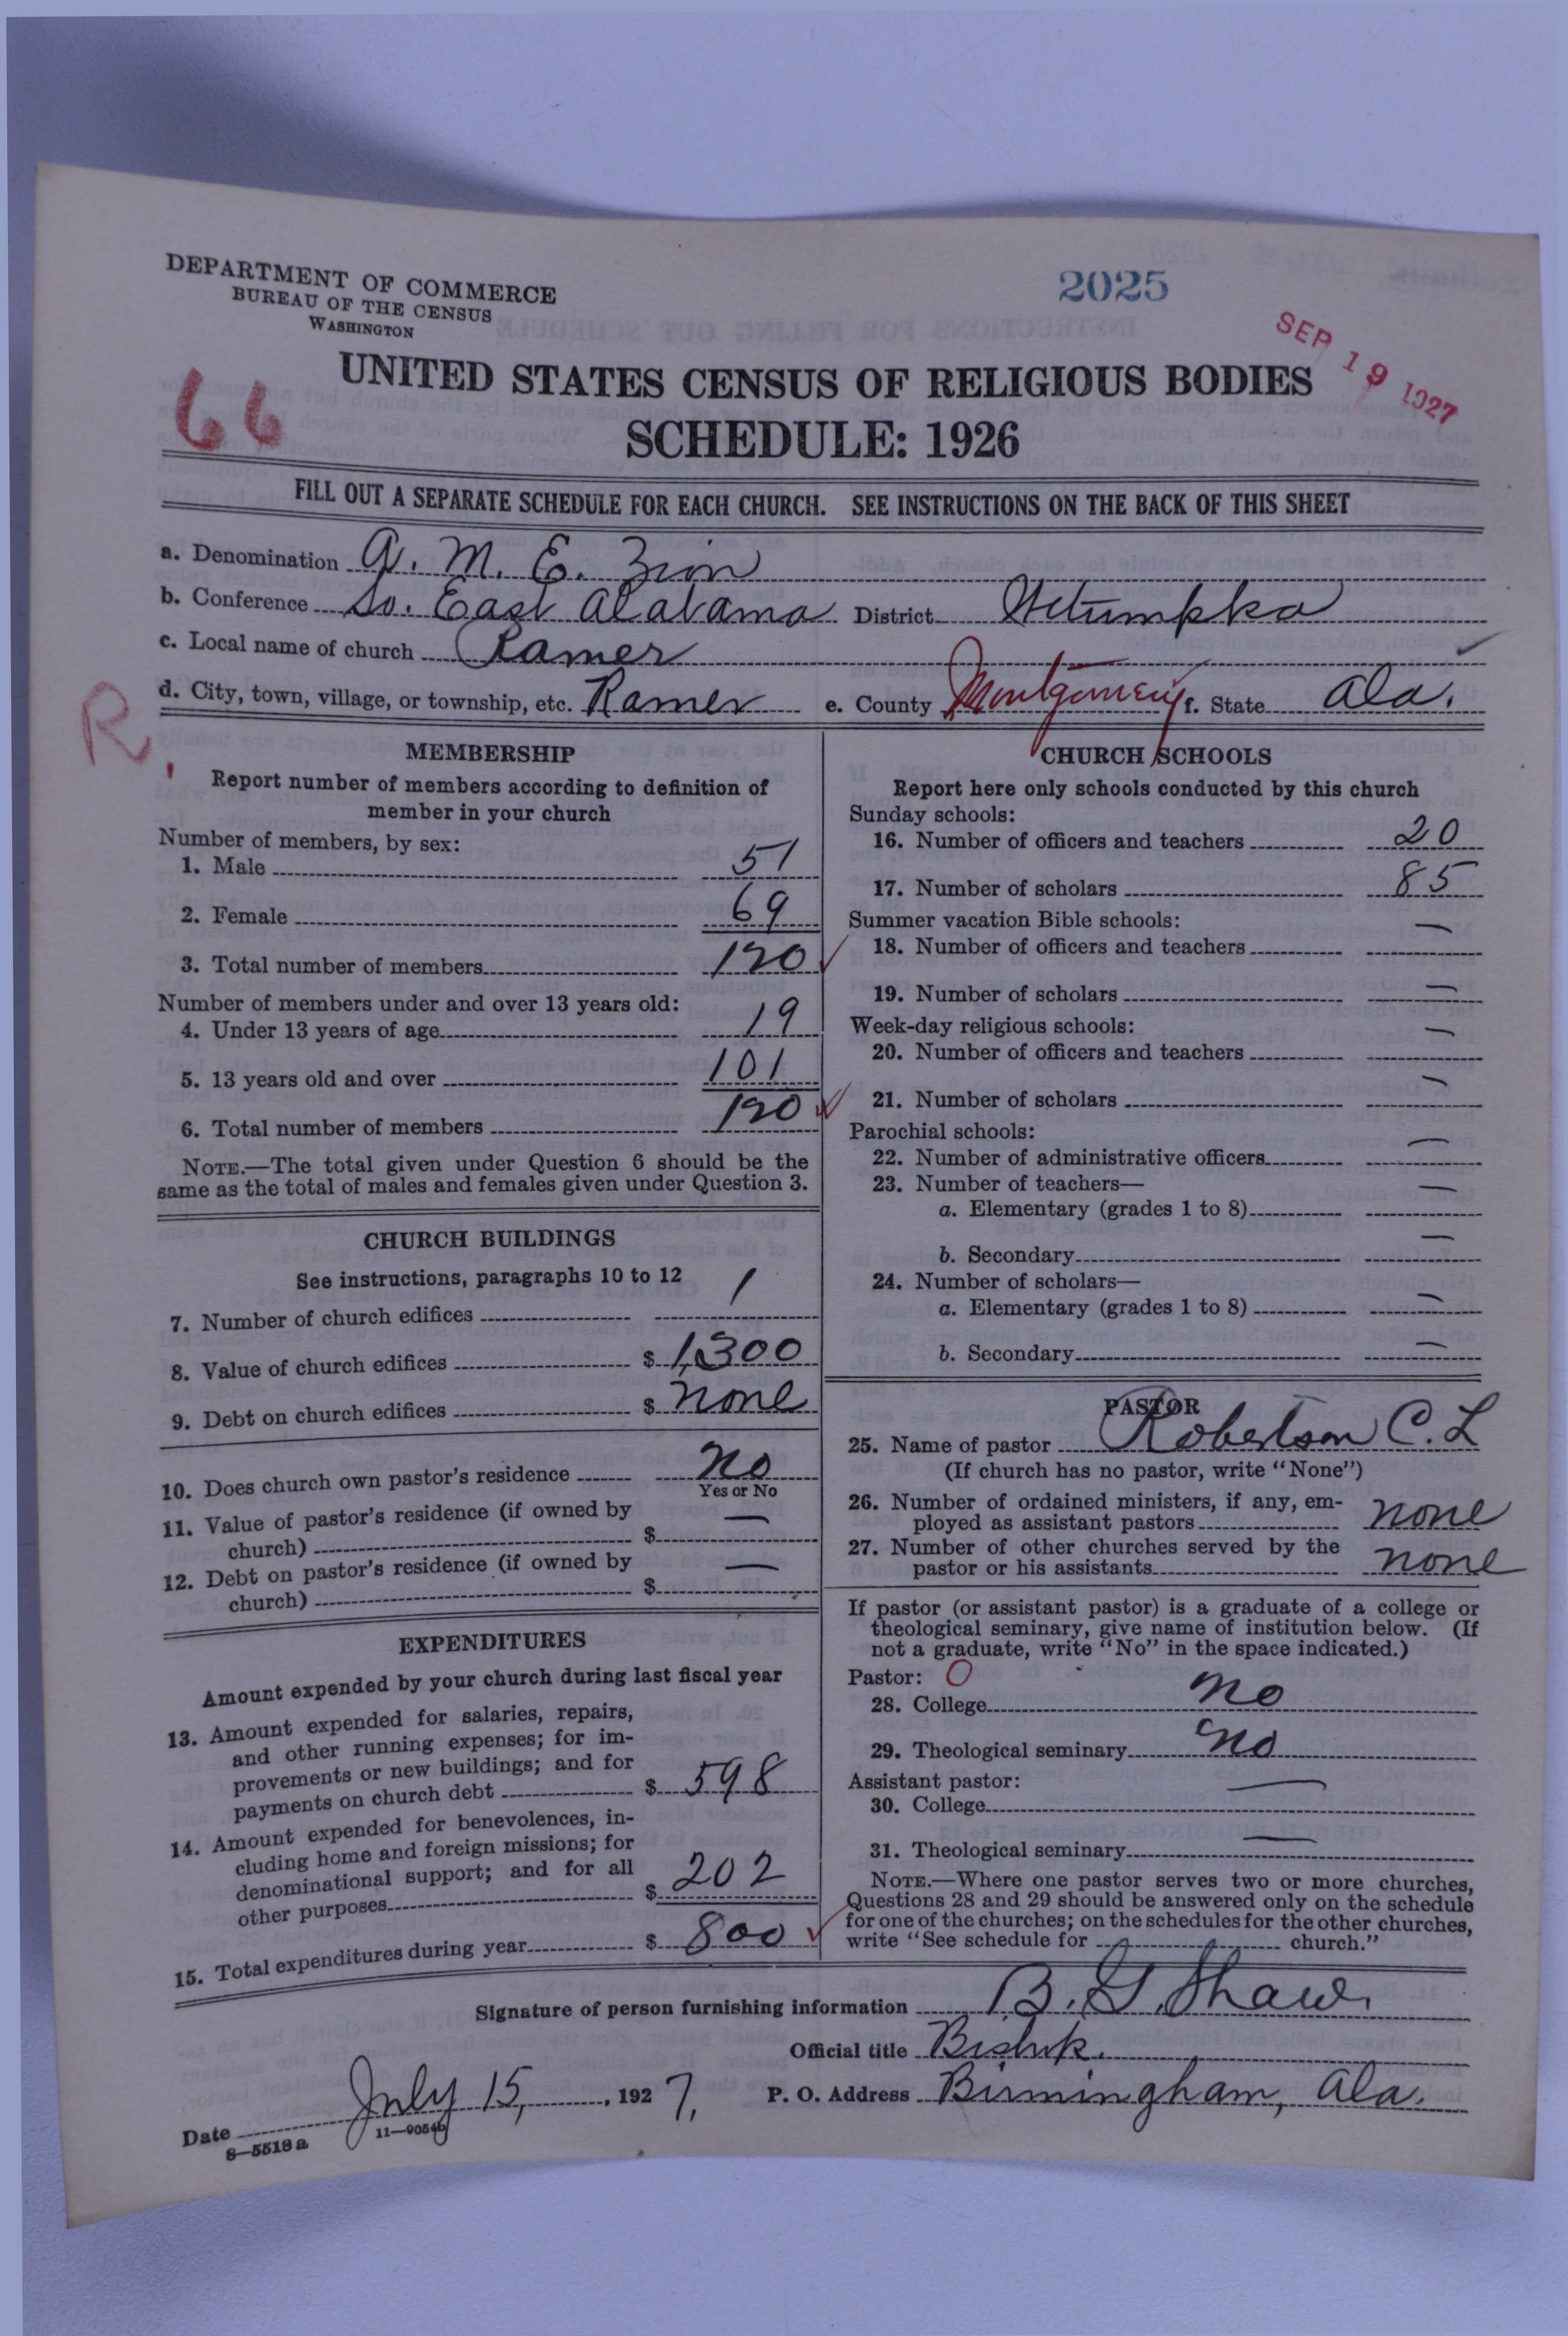 DEPARTMENT OF COMMERCE
BUREAU OF THE CENSUS
WASHINGTON
2025
SEP 19 1927
66
UNITED STATES CENSUS OF RELIGIOUS BODIES
SCHEDULE: 1926
FILL OUT A SEPARATE SCHEDULE FOR EACH CHURCH. SEE INSTRUCTIONS ON THE BACK OF THIS SHEET
a. Denomination A. M. E. Zion
b. Conference So. East Alabama District Wetumpka
c. Local name of church Ramer
d. City, town, village, or township, etc. Ramer e. County Montgomery f. State Ala.
R
MEMBERSHIP
Report number of members according to definition of
member in your church
Number of members, by sex:
1. Male 51
2. Female 69
3. Total number of members 120
Number of members under and over 13 years old:
4. Under 13 years of age 19
5. 13 years old and over 101
6. Total number of members 120
NOTE.—The total given under Question 6 should be the
same as the total of males and females given under Question 3.
CHURCH BUILDINGS
See instructions, paragraphs 10 to 12
7. Number of church edifices 1
8. Value of church edifices $ 1,300
9. Debt on church edifices $ none
10. Does church own pastor's residence No
Yes or No
11. Value of pastor's residence (if owned by
church) $ —
12. Debt on pastor's residence (if owned by
church) $ —
EXPENDITURES
Amount expended by your church during last fiscal year
13. Amount expended for salaries, repairs,
and other running expenses; for im-
provements or new buildings; and for
payments on church debt $ 598
14. Amount expended for benevolences, in-
cluding home and foreign missions; for
denominational support; and for all
other purposes $ 202
15. Total expenditures during year $ 800
CHURCH SCHOOLS
Report here only schools conducted by this church
Sunday schools:
16. Number of officers and teachers 20
17. Number of scholars 85
Summer vacation Bible schools:
18. Number of officers and teachers —
19. Number of scholars —
Week-day religious schools:
20. Number of officers and teachers —
21. Number of scholars —
Parochial schools:
22. Number of administrative officers —
23. Number of teachers—
a. Elementary (grades 1 to 8) —
b. Secondary —
24. Number of scholars—
a. Elementary (grades 1 to 8) —
b. Secondary —
PASTOR
25. Name of pastor Robertson C. L
(If church has no pastor, write "None")
26. Number of ordained ministers, if any, em-
ployed as assistant pastors none
27. Number of other churches served by the
pastor or his assistants none
If pastor (or assistant pastor) is a graduate of a college or
theological seminary, give name of institution below. (If
not a graduate, write "No" in the space indicated.)
Pastor: O
28. College No
29. Theological seminary No
Assistant pastor:
30. College —
31. Theological seminary —
NOTE.—Where one pastor serves two or more churches,
Questions 28 and 29 should be answered only on the schedule
for one of the churches; on the schedules for the other churches,
write "See schedule for church."
Signature of person furnishing information B. G. Shaw.
Official title Bishop.
Date July 15, 1927, P. O. Address Birmingham, Ala.
8—5518 a 11—9054b